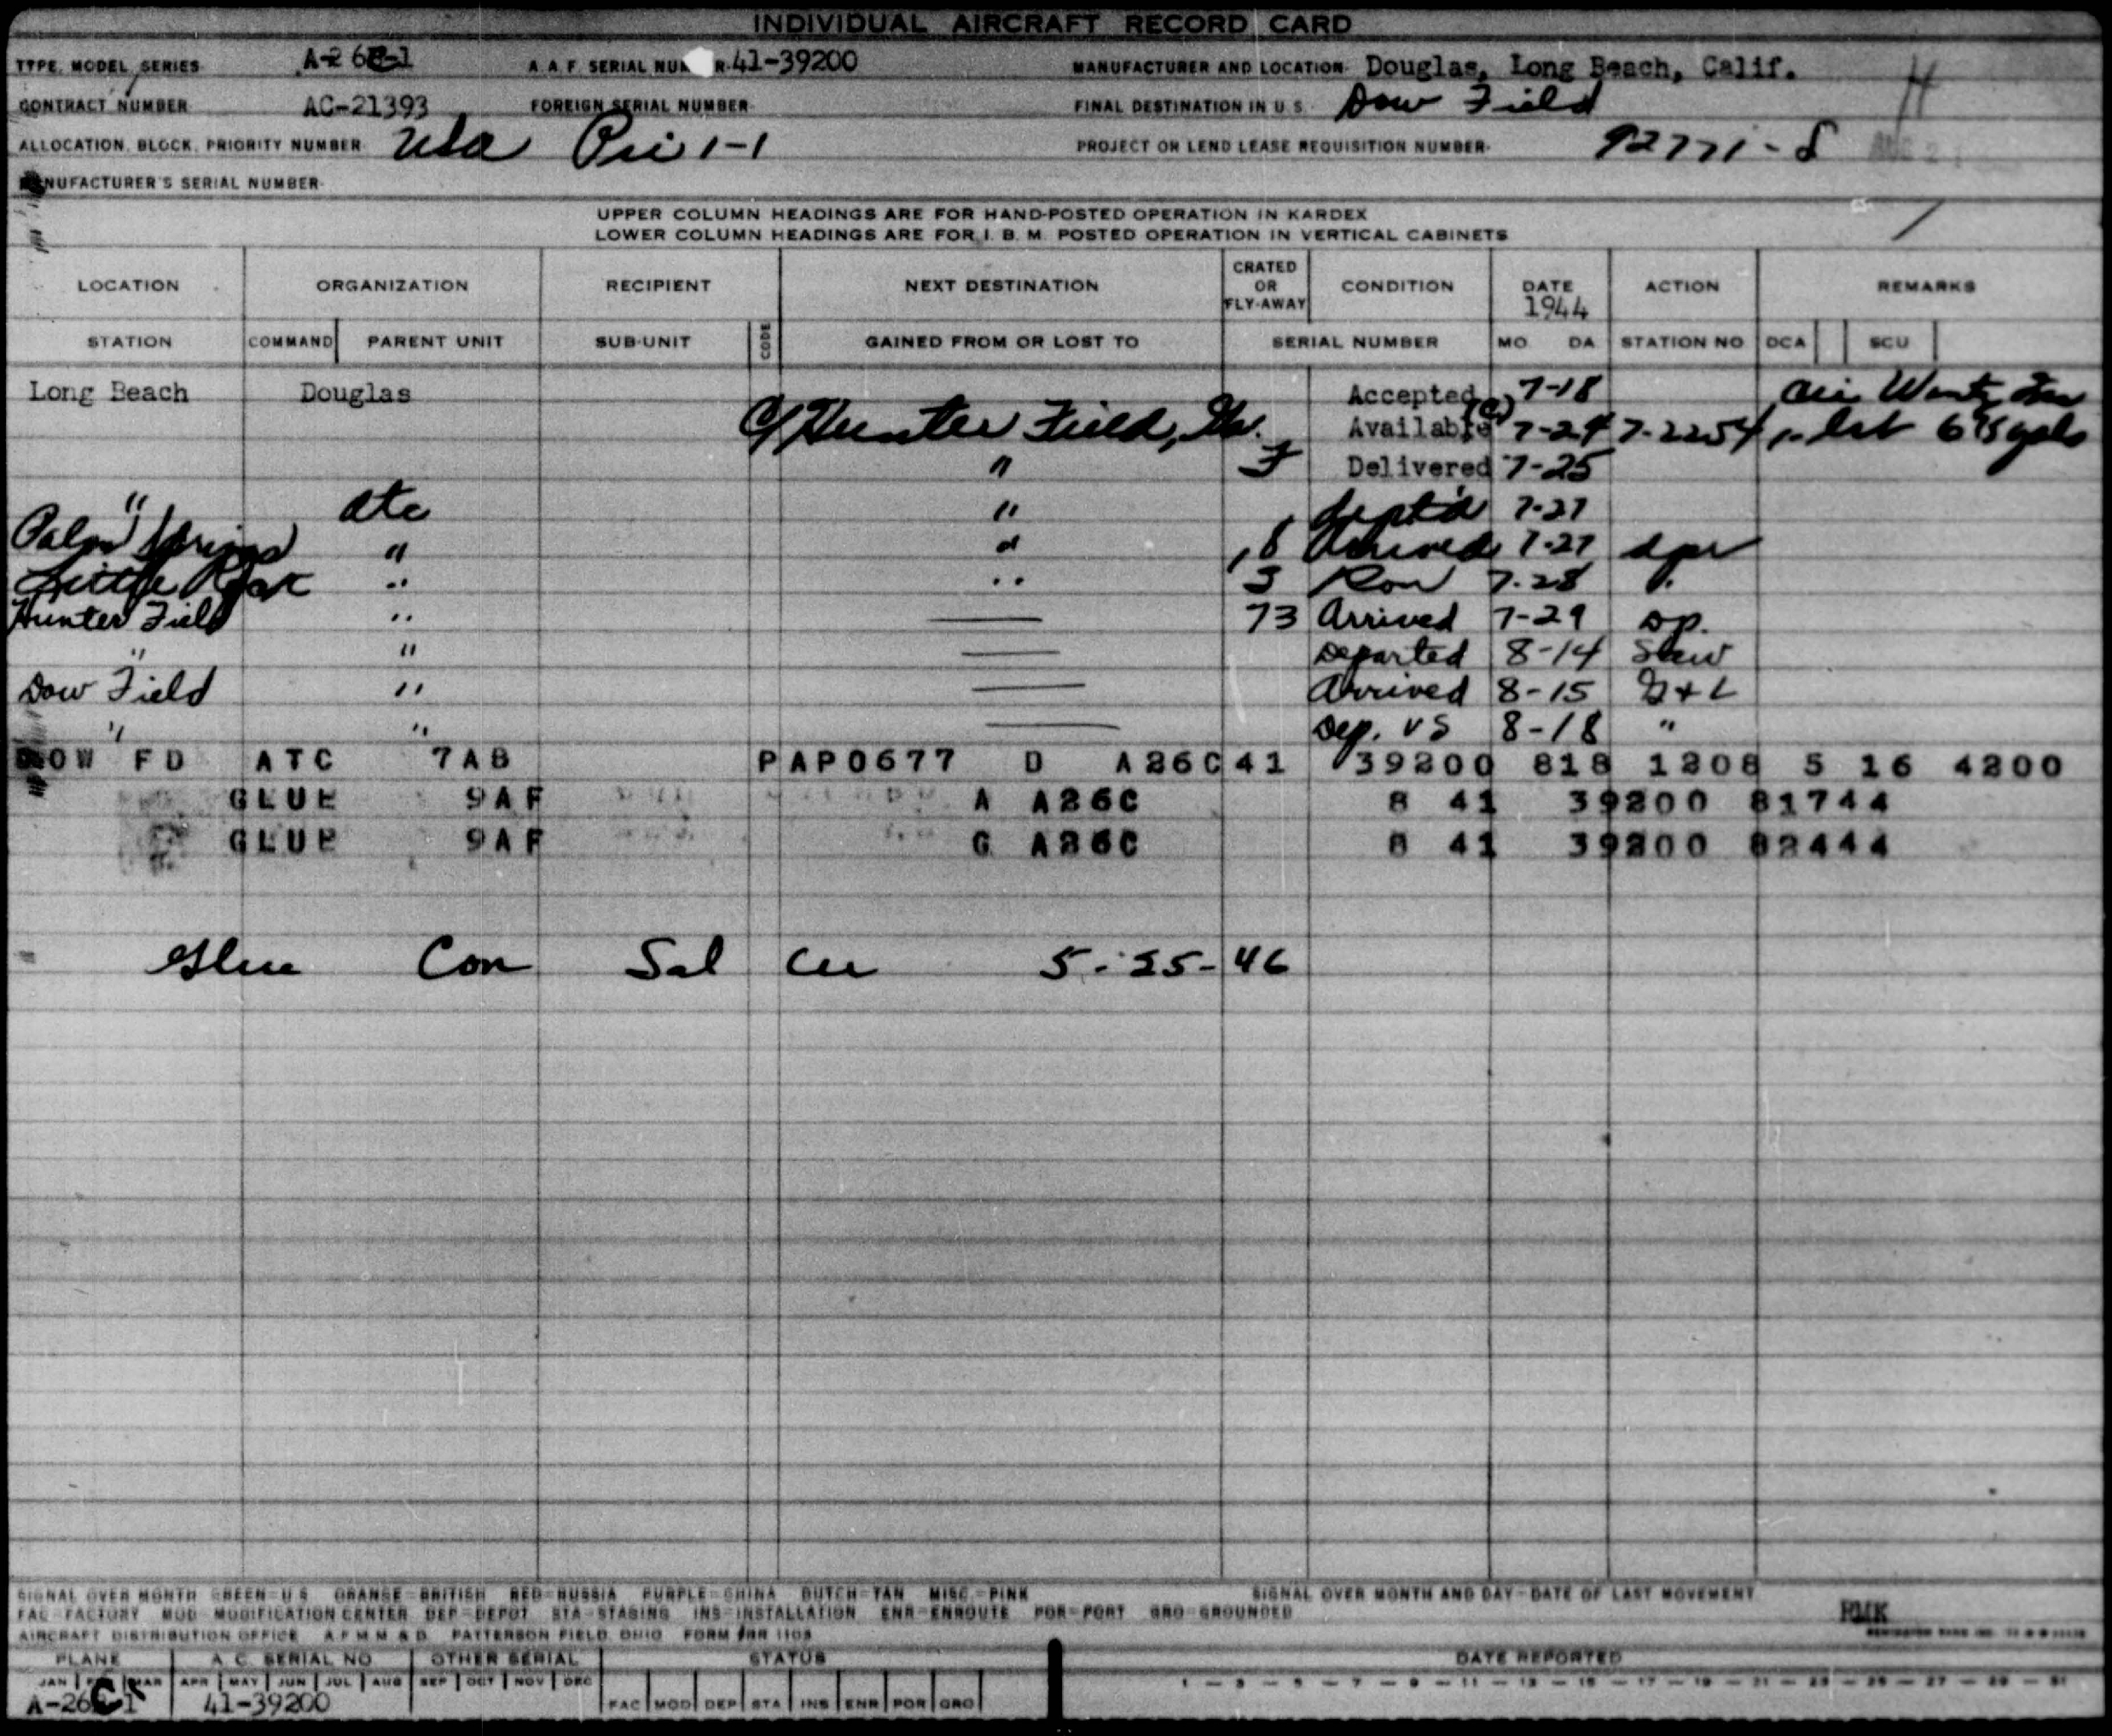 INDIVIDUAL AIRCRAFT RECORD CARD
TYPE, MODEL, SERIES A-26C-1 A.A.F. SERIAL NUM R. 41-39200 MANUFACTURER AND LOCATION Douglas, Long Beach, Calif.
CONTRACT NUMBER AC-21393 FOREIGN SERIAL NUMBER FINAL DESTINATION IN U.S. Dow Field H
ALLOCATION, BLOCK, PRIORITY NUMBER Usa Pri 1-1 PROJECT OR LEND LEASE REQUISITION NUMBER 92771-S
MANUFACTURER'S SERIAL NUMBER
UPPER COLUMN HEADINGS ARE FOR HAND-POSTED OPERATION IN KARDEX
LOWER COLUMN HEADINGS ARE FOR I.B.M. POSTED OPERATION IN VERTICAL CABINETS
LOCATION ORGANIZATION RECIPIENT NEXT DESTINATION CRATED OR FLY-AWAY CONDITION DATE 1944 ACTION REMARKS
STATION COMMAND PARENT UNIT SUB-UNIT CODE GAINED FROM OR LOST TO SERIAL NUMBER MO DA STATION NO DCA SCU
Long Beach Douglas Accepted 7-18
Hunter Field, Ga. Available (C) 7-24 7-2254 675 gals
" F Delivered 7-25
" Atc " Dept'd 7-27
Palm Springs " " 8 Arrived 7-27
Little Rock " " 3 Ron 7-28
Hunter Field " — 73 Arrived 7-29 Op.
" " — Departed 8-14
Dow Field " — Arrived 8-15 G+L
" " — Dep. US 8-18 "
DOW FD ATC 7AB PAP0677 D A26C 41 39200 818 1208 5 16 4200
GLUE 9AF A A26C 8 41 39200 81744
GLUE 9AF G A26C 8 41 39200 82444
Glue Con Sal 5-25-46
SIGNAL OVER MONTH GREEN=U S ORANGE=BRITISH RED=RUSSIA PURPLE=CHINA DUTCH=TAN MISC.=PINK SIGNAL OVER MONTH AND DAY=DATE OF LAST MOVEMENT
FAC=FACTORY MOD=MODIFICATION CENTER DEP=DEPOT STA=STAGING INS=INSTALLATION ENR=ENROUTE POR=PORT GRO=GROUNDED RMK
AIRCRAFT DISTRIBUTION OFFICE A.F.M.M & D. PATTERSON FIELD, OHIO FORM ARR 1103
PLANE A.C. SERIAL NO OTHER SERIAL STATUS DATE REPORTED
JAN FEB MAR APR MAY JUN JUL AUG SEP OCT NOV DEC 1 — 3 — 5 — 7 — 9 — 11 — 13 — 15 — 17 — 19 — 21 — 23 — 25 — 27 — 29 — 31
A-26C-1 41-39200 FAC MOD DEP STA INS ENR POR GRO